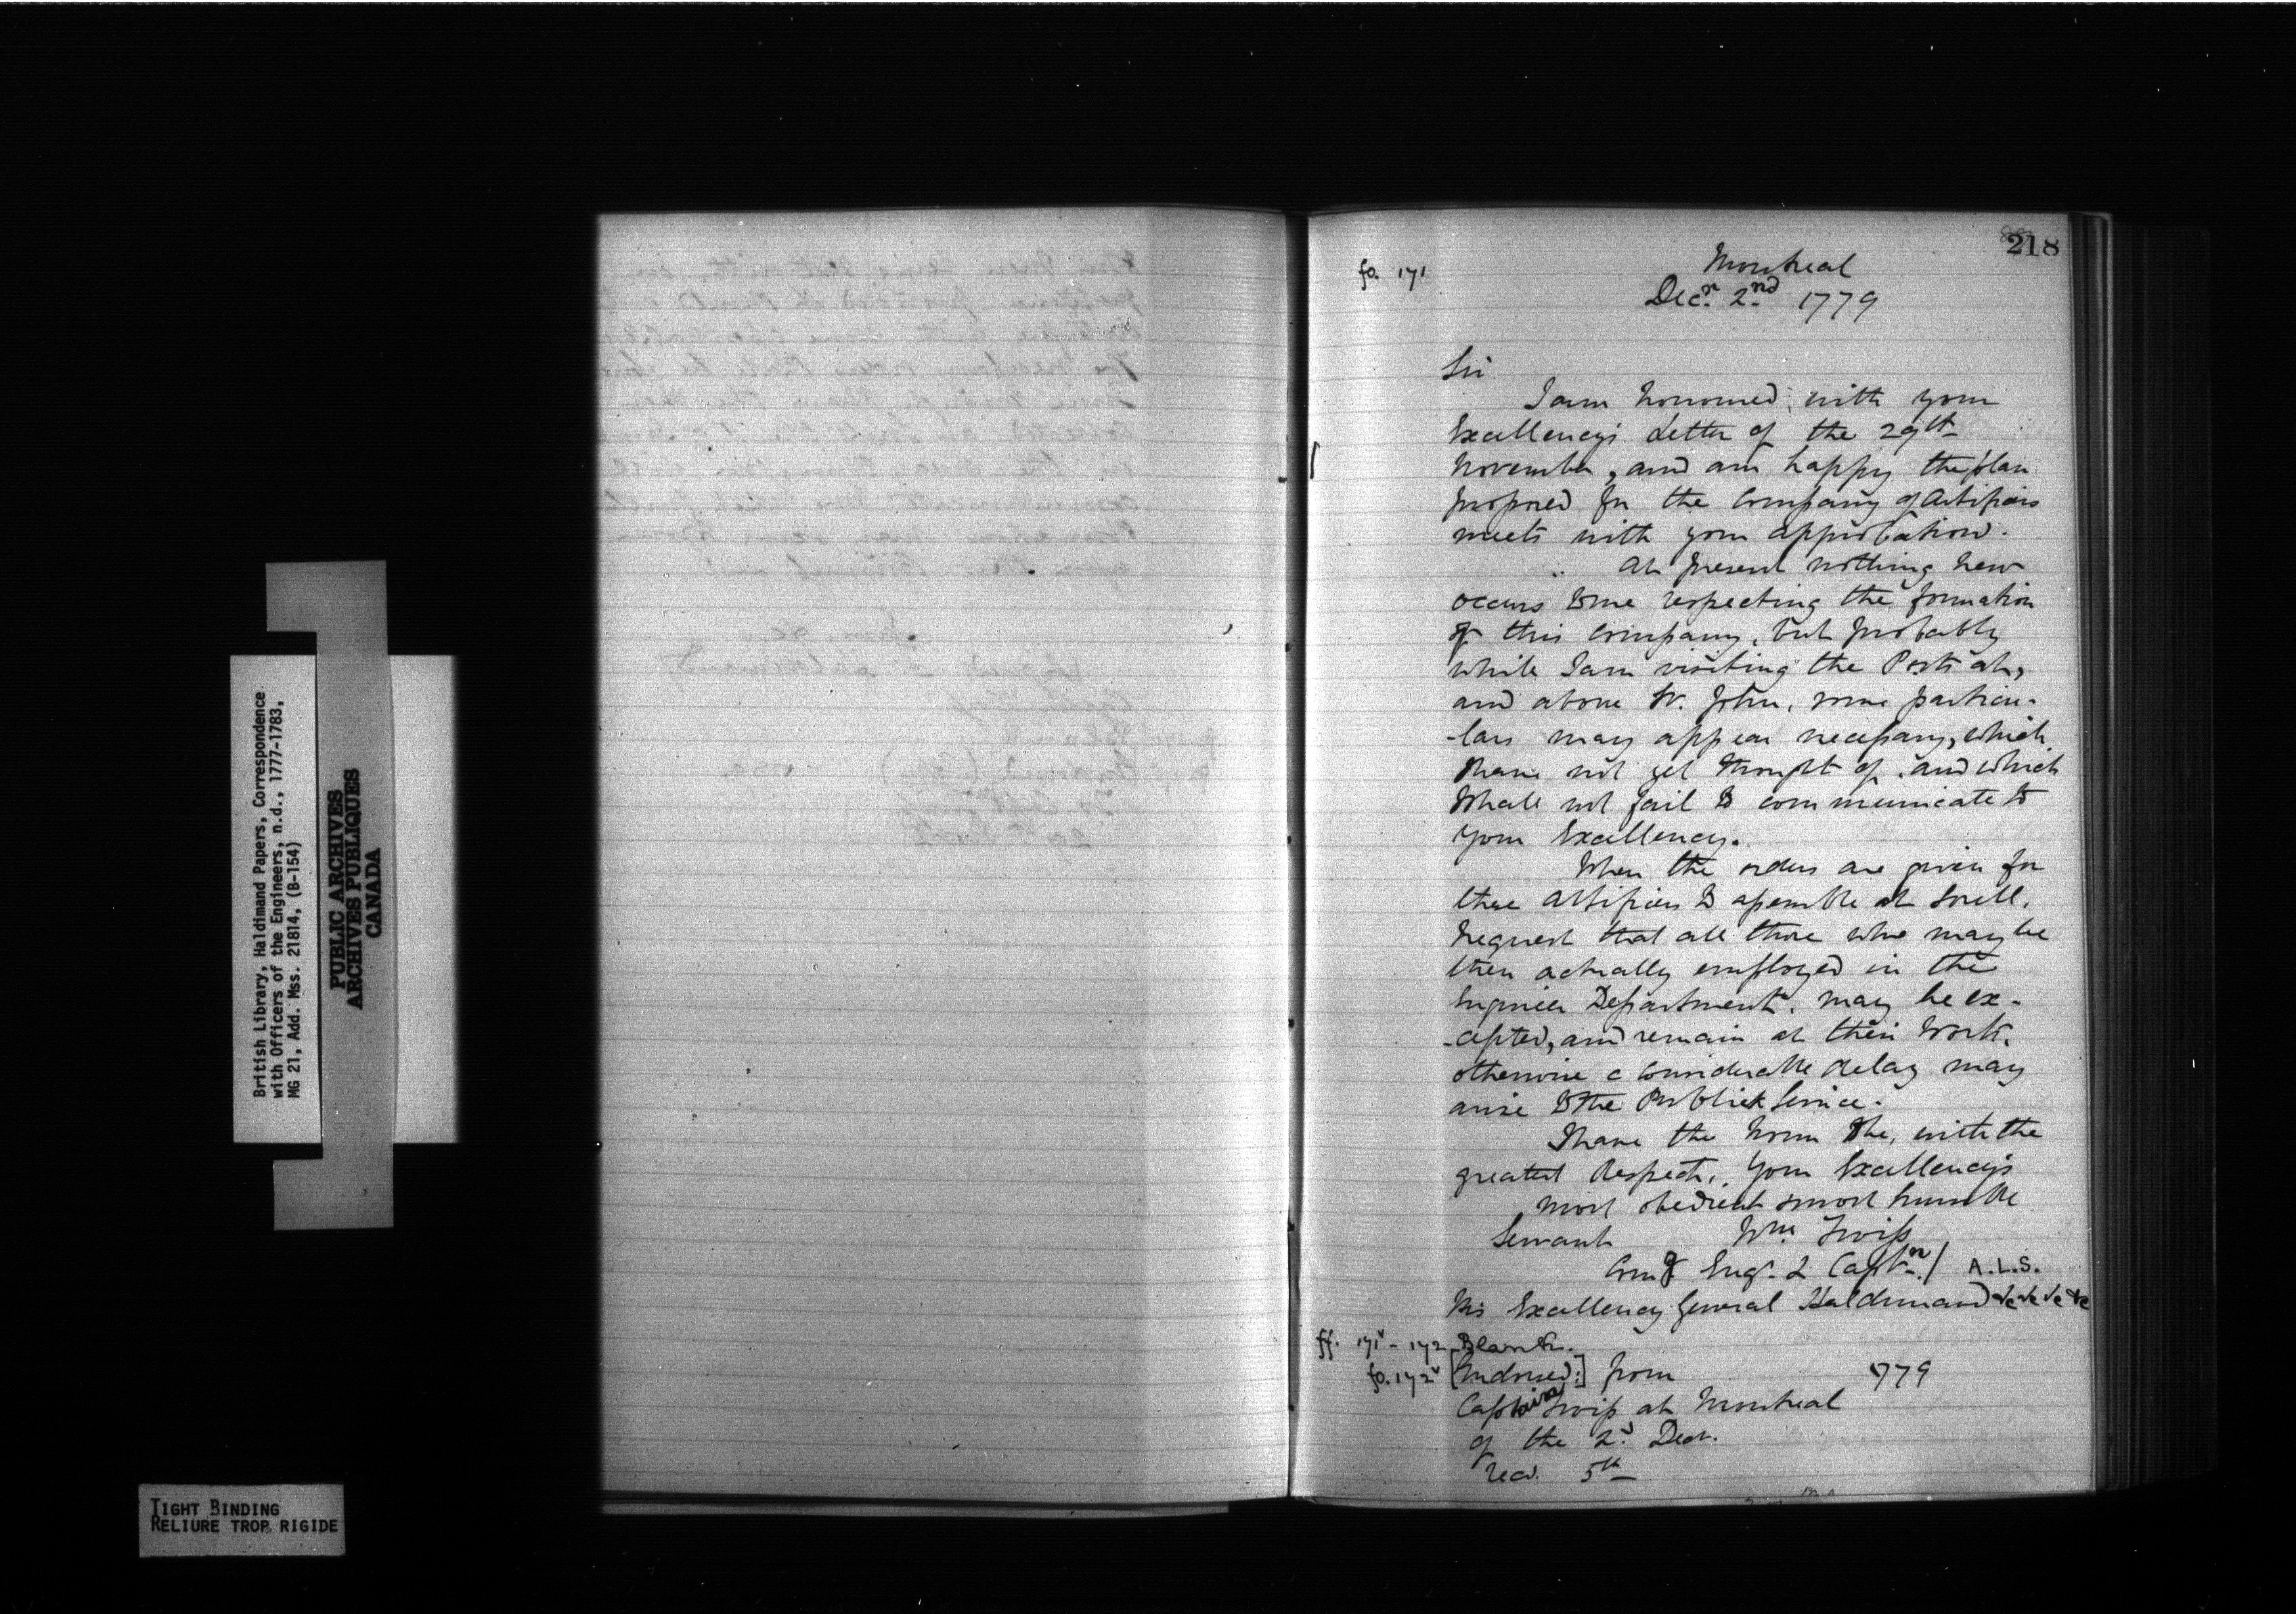 British Library, Haldimand Papers, Correspondence
with Officers of the Engineers, n.d., 1777-1783,
MG 21, Add. Mss. 21814, (B-154)
PUBLIC ARCHIVES
ARCHIVES PUBLIQUES
CANADA
TIGHT BINDING
RELIURE TROP RIGIDE
218
fo. 171
Montreal
Decr. 2nd 1779
Sir
I am honoured with your
Excellency's Letter of the 29th
November, and am happy the plan
proposed for the Company of Artificers
meets with your approbation.
At present nothing new
occurs to me respecting the formation
of this Company, but probably
while I am visiting the Posts at,
and above St. John, some particu-
-lars may appear necessary, which
I have not yet thought of, and which
I shall not fail to communicate to
Your Excellency.
When the orders are given for
these Artificers to assemble at Sorell,
I request that all those who may be
then actually employed in the
Engineer Department, may be ex-
-cepted, and remain at their Work,
otherwise a considerable delay may
arise to the Publick Service.
I have the honor to be, with the
greatest Respect, Your Excellency's
most obedient & most humble
Servant Wm. Twiss
Comg Engr. & Captn./ A.L.S.
His Excellency General Haldimand &c &c &c &c
ff. 171v - 172 Blank.
fo. 172v [Endorsed:] from 1779
Captain Twiss at Montreal
of the 2d. Decr.
recd. 5th